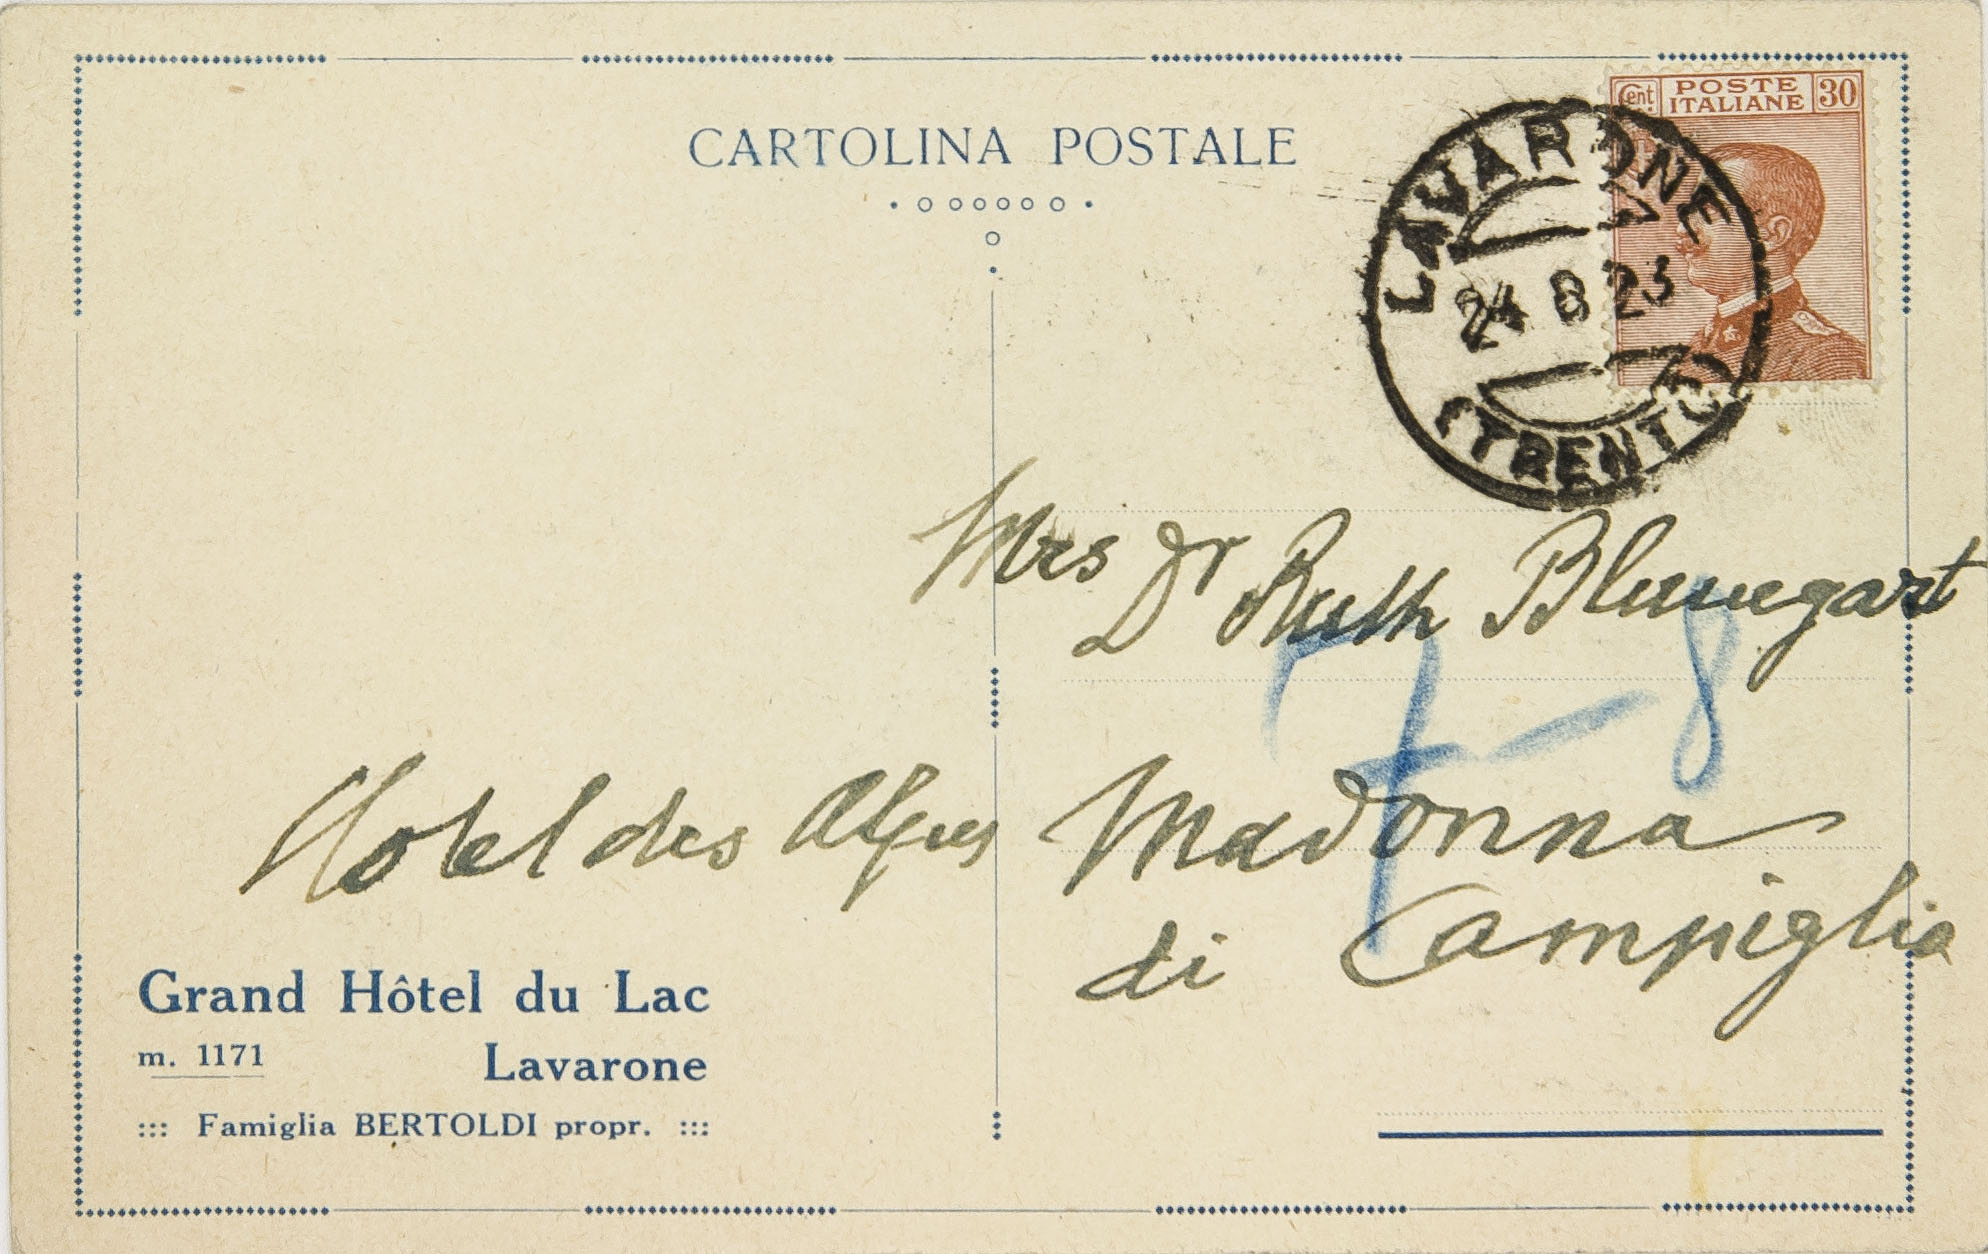 CARTOLINA POSTALE
Cent. POSTE ITALIANE 30
LAVARONE
24 8 23
(TRENTO)
Mrs Dr Ruth Blumgart
7-8
Hotel des Alpes Madonna
di Campiglia
Grand Hôtel du Lac
m. 1171 Lavarone
::: Famiglia BERTOLDI propr. :::